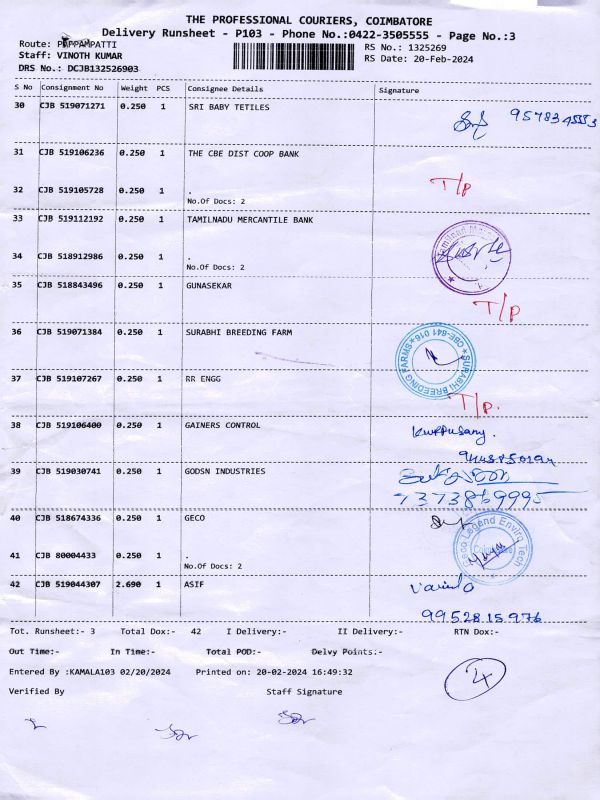 THE PROFESSIONAL COURIERS, COIMBATORE
Delivery Runsheet - P103 - Phone No.:0422-3505555 - Page No.:3
Route: PAPPAMPATTI
RS No.: 1325269
Staff: VINOTH KUMAR
RS Date: 20-Feb-2024
DRS No.: DCJB132526903
S No Consignment No Weight PCS Consignee Details Signature
30 CJB 519071271 0.250 1 SRI BABY TETILES
31 CJB 519106236 0.250 1 THE CBE DIST COOP BANK
T/p
32 CJB 519105728 0.250 1 .
No.Of Docs: 2
33 CJB 519112192 0.250 1 TAMILNADU MERCANTILE BANK
34 CJB 518912986 0.250 1 .
No.Of Docs: 2
35 CJB 518843496 0.250 1 GUNASEKAR
T/p
36 CJB 519071384 0.250 1 SURABHI BREEDING FARM
SURABHI BREEDING FARMS CBE-641 016
37 CJB 519107267 0.250 1 RR ENGG
T/p.
38 CJB 519106400 0.250 1 GAINERS CONTROL
39 CJB 519030741 0.250 1 GODSN INDUSTRIES
7373869995
40 CJB 518674336 0.250 1 GECO
Geco Legend Enviro Tech
41 CJB 80004433 0.250 1 .
No.Of Docs: 2
42 CJB 519044307 2.690 1 ASIF
9952815976
Tot. Runsheet:- 3 Total Dox:- 42 I Delivery:- II Delivery:- RTN Dox:-
Out Time:- In Time:- Total POD:- Delvy Points:-
Entered By :KAMALA103 02/20/2024 Printed on: 20-02-2024 16:49:32
Verified By Staff Signature